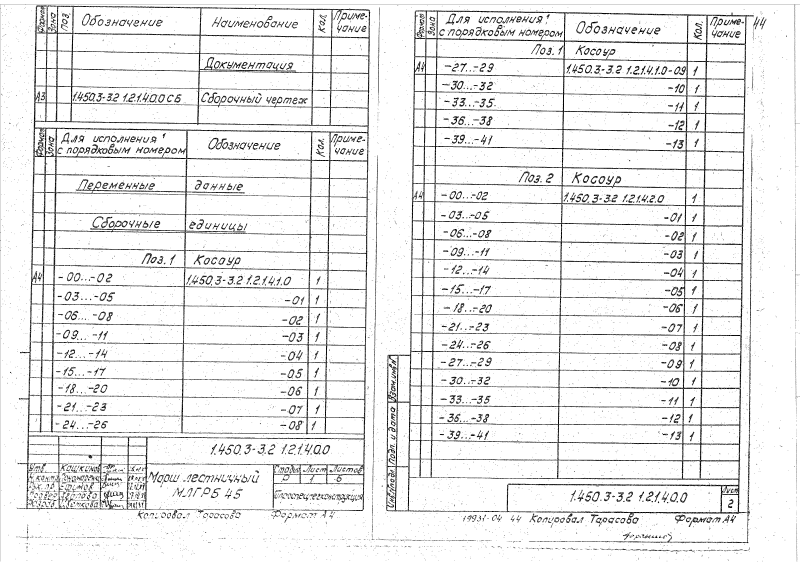 Формат Зона Поз. Обозначение Наименование Кол. Примечание
Документация
А3 1.450.3-3.2 1.2.1.4.0.0 СБ Сборочный чертеж
Формат Зона Для исполнения с порядковым номером Обозначение Кол. Примечание
Переменные данные
Сборочные единицы
Поз. 1 Косоур
А4 -00...-02 1.450.3-3.2 1.2.1.4.1.0 1
-03...-05 -01 1
-06...-08 -02 1
-09...-11 -03 1
-12...-14 -04 1
-15...-17 -05 1
-18...-20 -06 1
-21...-23 -07 1
-24...-26 -08 1
1.450.3-3.2 1.2.1.4.0.0
Утв. Кашкинов
Марш лестничный
МЛГРБ 45
Стадия Лист Листов
Р 1 6
Копировал Тарасова Формат А4
44
Формат Зона Для исполнения с порядковым номером Обозначение Кол. Примечание
Поз. 1 Косоур
А4 -27...-29 1.450.3-3.2 1.2.1.4.1.0-09 1
-30...-32 -10 1
-33...-35 -11 1
-36...-38 -12 1
-39...-41 -13 1
Поз. 2 Косоур
А4 -00...-02 1.450.3-3.2 1.2.1.4.2.0 1
-03...-05 -01 1
-06...-08 -02 1
-09...-11 -03 1
-12...-14 -04 1
-15...-17 -05 1
-18...-20 -06 1
-21...-23 -07 1
-24...-26 -08 1
-27...-29 -09 1
-30...-32 -10 1
-33...-35 -11 1
-36...-38 -12 1
-39...-41 -13 1
Инв.№подл. Подп. и дата Взам.инв.№
1.450.3-3.2 1.2.1.4.0.0
Лист
2
19931-04 44 Копировал Тарасова Формат А4